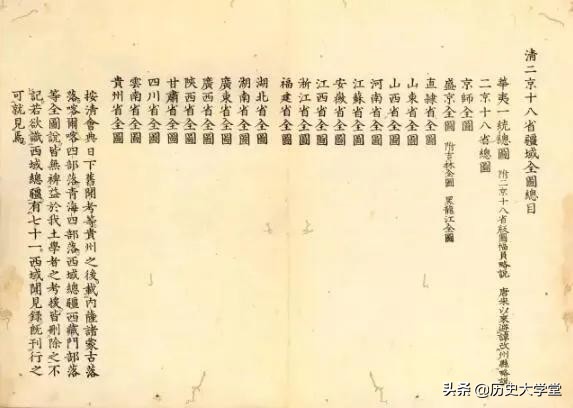 清二京十八省疆域全圖總目
華夷一統總圖 附二京十八省 圖幅員略說 唐宋以來避諱改州縣略說
二京十八省總圖
京師全圖
盛京全圖 附吉林全圖 黑龍江全圖
直隷省全圖
山東省全圖
山西省全圖
河南省全圖
江蘇省全圖
安徽省全圖
江西省全圖
浙江省全圖
福建省全圖
湖北省全圖
湖南省全圖
廣東省全圖
廣西省全圖
陝西省全圖
甘肅省全圖
四川省全圖
雲南省全圖
貴州省全圖
按清會典日下舊聞考等貴州之後載內薩諸蒙古落
落喀爾喀四部落青海四部落西域總疆西藏門部落
等全圖說皆無裨益於我土學者之考援皆刪除之不
記若欲識西域總疆有七十一西域聞見錄旣刊行之
可就見焉
头条 @历史大学堂